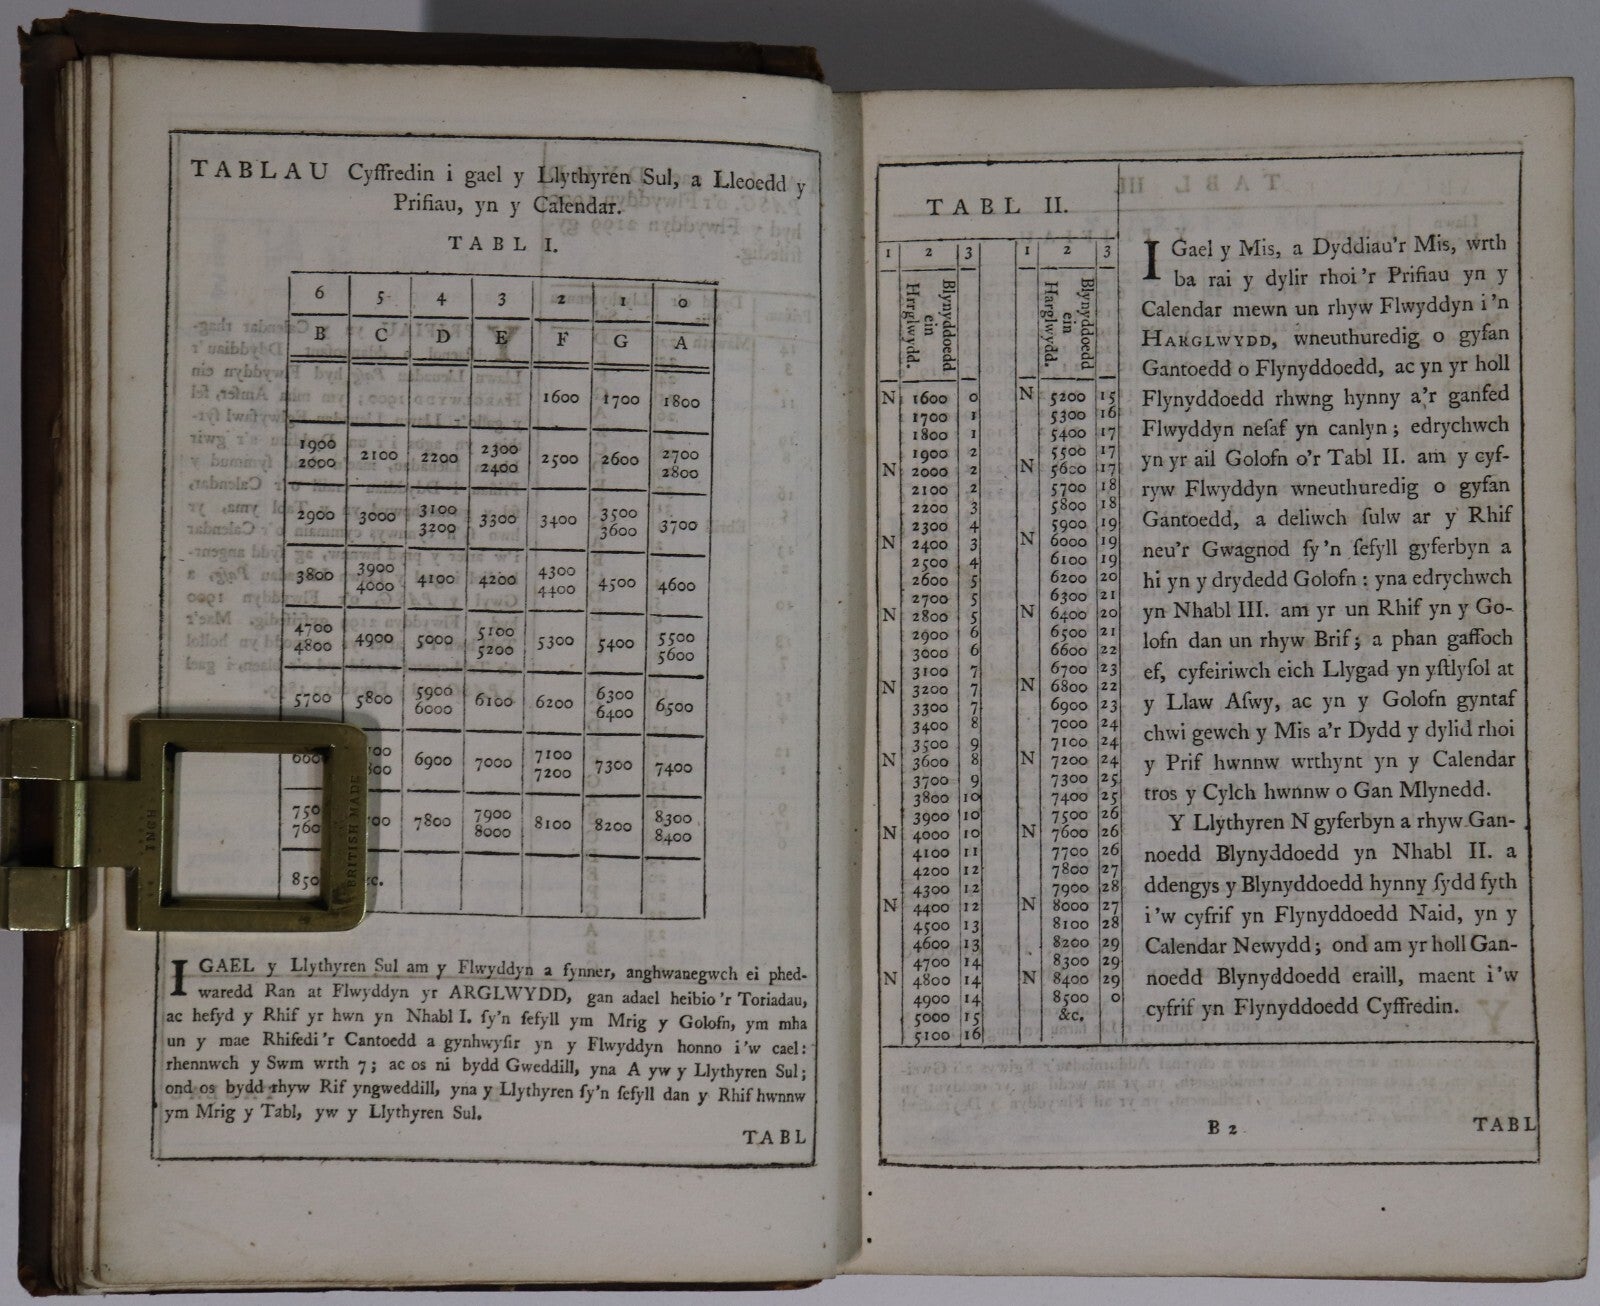 TABLAU Cyffredin i gael y Llythyren Sul, a Lleoedd y
Prifiau, yn y Calendar.
TABL I.
6 5 4 3 2 1 0
B C D E F G A
1600 1700 1800
1900 2000 2100 2200 2300 2400 2500 2600 2700 2800
2900 3000 3100 3200 3300 3400 3500 3600 3700
3800 3900 4000 4100 4200 4300 4400 4500 4600
4700 4800 4900 5000 5100 5200 5300 5400 5500 5600
5700 5800 5900 6000 6100 6200 6300 6400 6500
6900 7000 7100 7200 7300 7400
7800 7900 8000 8100 8200 8300 8400
INCH
BRITISH MADE
I GAEL y Llythyren Sul am y Flwyddyn a fynner, anghwanegwch ei phed-
waredd Ran at Flwyddyn yr ARGLWYDD, gan adael heibio 'r Toriadau,
ac hefyd y Rhif yr hwn yn Nhabl I. ſy'n ſefyll ym Mrig y Golofn, ym mha
un y mae Rhifedi 'r Cantoedd a gynhwyſir yn y Flwyddyn honno i'w cael:
rhennwch y Swm wrth 7; ac os ni bydd Gweddill, yna A yw y Llythyren Sul;
ond os bydd rhyw Rif yngweddill, yna y Llythyren ſy'n ſefyll dan y Rhif hwnnw
ym Mrig y Tabl, yw y Llythyren Sul.
TABL
TABL II.
1 2 3 1 2 3
Blynyddoedd ein Hrrglwydd. Blynyddoedd ein Harglwydd.
N 1600 0 N 5200 15
1700 1 5300 16
1800 1 5400 17
1900 2 5500 17
N 2000 2 N 5600 17
2100 2 5700 18
2200 3 5800 18
2300 4 5900 19
N 2400 3 N 6000 19
2500 4 6100 19
2600 5 6200 20
2700 5 6300 21
N 2800 5 N 6400 20
2900 6 6500 21
3000 6 6600 22
3100 7 6700 23
N 3200 7 N 6800 22
3300 7 6900 23
3400 8 7000 24
3500 9 7100 24
N 3600 8 N 7200 24
3700 9 7300 25
3800 10 7400 25
3900 10 7500 26
N 4000 10 N 7600 26
4100 11 7700 26
4200 12 7800 27
4300 12 7900 28
N 4400 12 N 8000 27
4500 13 8100 28
4600 13 8200 29
4700 14 8300 29
N 4800 14 N 8400 29
4900 14 8500 0
5000 15 &c.
5100 16
I Gael y Mis, a Dyddiau'r Mis, wrth
ba rai y dylir rhoi 'r Prifiau yn y
Calendar mewn un rhyw Flwyddyn i 'n
HARGLWYDD, wneuthuredig o gyfan
Gantoedd o Flynyddoedd, ac yn yr holl
Flynyddoedd rhwng hynny a'r ganfed
Flwyddyn neſaf yn canlyn; edrychwch
yn yr ail Golofn o'r Tabl II. am y cyf-
ryw Flwyddyn wneuthuredig o gyfan
Gantoedd, a deliwch ſulw ar y Rhif
neu'r Gwagnod ſy'n ſefyll gyferbyn a
hi yn y drydedd Golofn: yna edrychwch
yn Nhabl III. am yr un Rhif yn y Go-
lofn dan un rhyw Brif; a phan gaffoch
ef, cyfeiriwch eich Llygad yn yſtlyſol at
y Llaw Aſwy, ac yn y Golofn gyntaf
chwi gewch y Mis a'r Dydd y dylid rhoi
y Prif hwnnw wrthynt yn y Calendar
tros y Cylch hwnnw o Gan Mlynedd.
Y Llythyren N gyferbyn a rhyw Gan-
noedd Blynyddoedd yn Nhabl II. a
ddengys y Blynyddoedd hynny ſydd fyth
i'w cyfrif yn Flynyddoedd Naid, yn y
Calendar Newydd; ond am yr holl Gan-
noedd Blynyddoedd eraill, maent i'w
cyfrif yn Flynyddoedd Cyffredin.
B 2
TABL